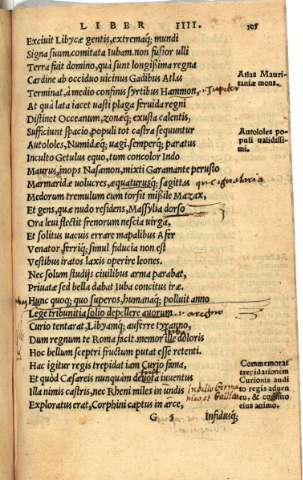 LIBER IIII. 105
Exciuit Libycæ gentis, extremæq; mundi
Signa suum comitata Iubam. non fusior ulli
Terra fuit domino, quà sunt longissima regna
Cardine ab occiduo uicinus Gadibus Atlas
Atlas Mauri-
taniæ mons.
Terminat, à medio confinis syrtibus Hammon,
At quà lata iacet uasti plaga feruida regni
Distinet Oceanum, zonæq; exusta calentis,
Sufficiunt spacio, populi tot castra sequuntur
Autololes, Numidæq; uagi, semperq; paratus
Autololes po
puli ualidissi-
mi.
Inculto Getulus equo, tum concolor Indo
Maurus, inops Nasamon, mixti Garamante perusto
Marmaridæ uolucres, æquaturusq; sagittas
Medorum tremulum cum torsit missile Mazax,
Et gens, quæ nudo residens, Massylia dorso
Ora leui flectit frenorum nescia uirga,
Et solitus uacuis errare mapalibus Afer
Venator, ferriq; simul fiducia non est
Vestibus iratos laxis operire leones.
Nec solum studijs ciuilibus arma parabat,
Priuatæ sed bella dabat Iuba concitus iræ.
Hunc quoq; quo superos, humanaq; polluit anno
Lege tribunitia solio depellere auorum
Curio tentarat, Libyamq; auferre tyranno,
Dum regnum te Roma facit. memor ille doloris
Hoc bellum sceptri fructum putat esse retenti.
Hac igitur regis trepidat iam Curio fama,
Commemorat
trepidationem
Curionis audi
to regis aduen
tu, & cogitatio
eius animo.
Et quòd Cæsareis nunquàm deuota iuuentus
Illa nimis castris, nec Rheni miles in undis
Exploratus erat, Corphini captus in arce,
G 5 Infidusq;